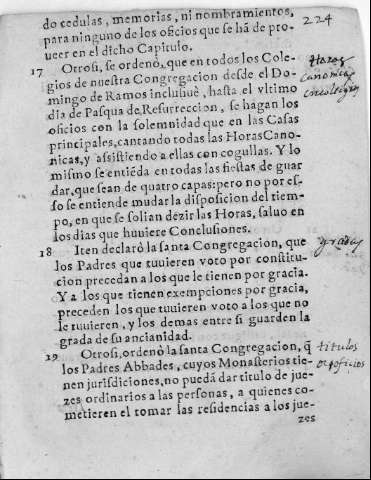 do cedulas, memorias, ni nombramientos,
para ninguno de los oficios que se hã de pro-
ueer en el dicho Capitulo.
224
17 Otrosi, se ordenò, que en todos los Cole-
gios de nuestra Congregacion desde el Do-
mingo de Ramos inclusiuè, hasta el vltimo
dia de Pasqua de Resurreccion, se hagan los
oficios con la solemnidad que en las Casas
principales, cantando todas las Horas Cano-
nicas, y assistiendo a ellas con cogullas. Y lo
mismo se entiẽda en todas las fiestas de guar
dar, que sean de quatro capas: pero no por es-
so se entiende mudar la disposicion del tiem-
po, en que se solian dezir las Horas, saluo en
los dias que huuiere Conclusiones.
Horas
canonicas
en colegios
18 Iten declarò la santa Congregacion, que
los Padres que tuuieren voto por constitu-
cion precedan a los que le tienen por gracia.
Y a los que tienen exempciones por gracia,
preceden los que tuuieren voto a los que no
le tuuieren, y los demas entre si guarden la
grada de su ancianidad.
gradas
19 Otrosi, ordenò la santa Congregacion, q̃
los Padres Abbades, cuyos Monasterios tie-
nen jurisdiciones, no puedã dar titulo de jue-
zes ordinarios a las personas, a quienes co-
metieren el tomar las residencias a los jue-
zes
titulos
oficios